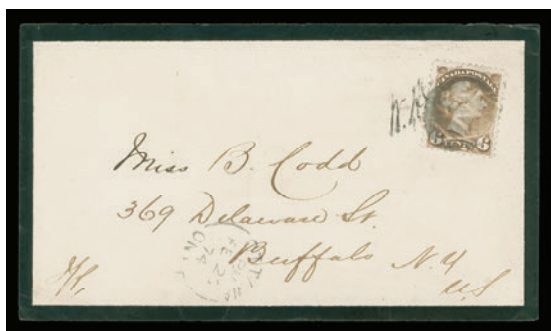 CANADA POSTAGE
6 CENTS 6
Miss B. Codd
369 Delaware St.
Buffalo N.Y
U.S
ONT